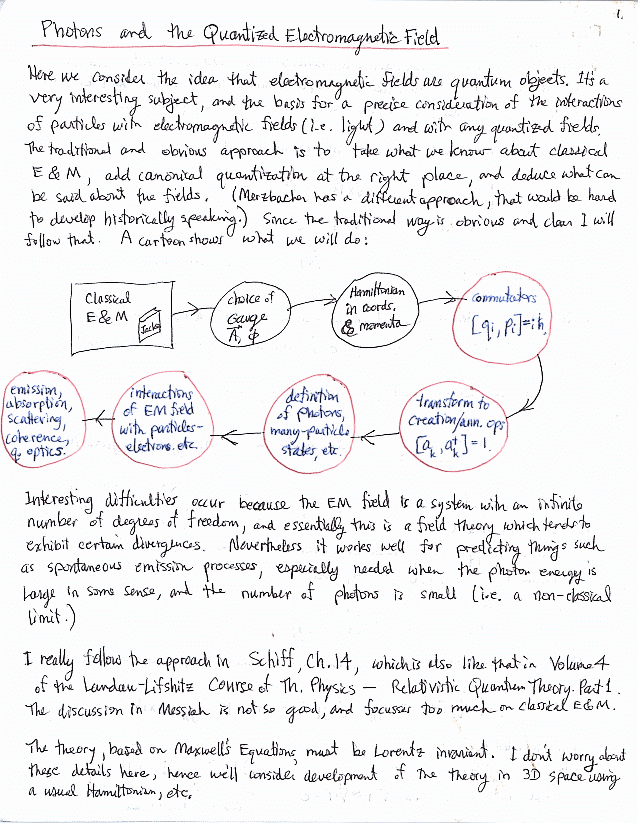 1.
Photons and the Quantized Electromagnetic Field
Here we consider the idea that electromagnetic fields are quantum objects. It's a
very interesting subject, and the basis for a precise consideration of the interactions
of particles with electromagnetic fields (i.e. light) and with any quantized fields.
The traditional and obvious approach is to take what we know about classical
E & M, add canonical quantization at the right place, and deduce what can
be said about the fields. (Merzbacher has a different approach, that would be hard
to develop historically speaking.) Since the traditional way is obvious and clear I will
follow that. A cartoon shows what we will do:
Classical
E & M
Jacks
choice of
Gauge
A, φ
Hamiltonian
in coords.
& momenta
commutators
[qi, pi]=iħ
emission,
absorption,
scattering,
coherence,
q. optics.
interactions
of EM field
with particles-
electrons. etc.
definition
of photons,
many-particle
states, etc.
transform to
creation/ann. ops
[ak, ak†]=1.
Interesting difficulties occur because the EM field is a system with an infinite
number of degrees of freedom, and essentially this is a field theory which tends to
exhibit certain divergences. Nevertheless it works well for predicting things such
as spontaneous emission processes, especially needed when the photon energy is
large in some sense, and the number of photons is small (i.e. a non-classical
limit.)
I really follow the approach in Schiff, Ch. 14, which is also like that in Volume 4
of the Landau-Lifshitz Course of Th. Physics — Relativistic Quantum Theory. Part 1.
The discussion in Messiah is not so good, and focusses too much on classical E&M.
The theory, based on Maxwell's Equations, must be Lorentz invariant. I don't worry about
these details here, hence we'll consider development of the theory in 3D space using
a usual Hamiltonian, etc.